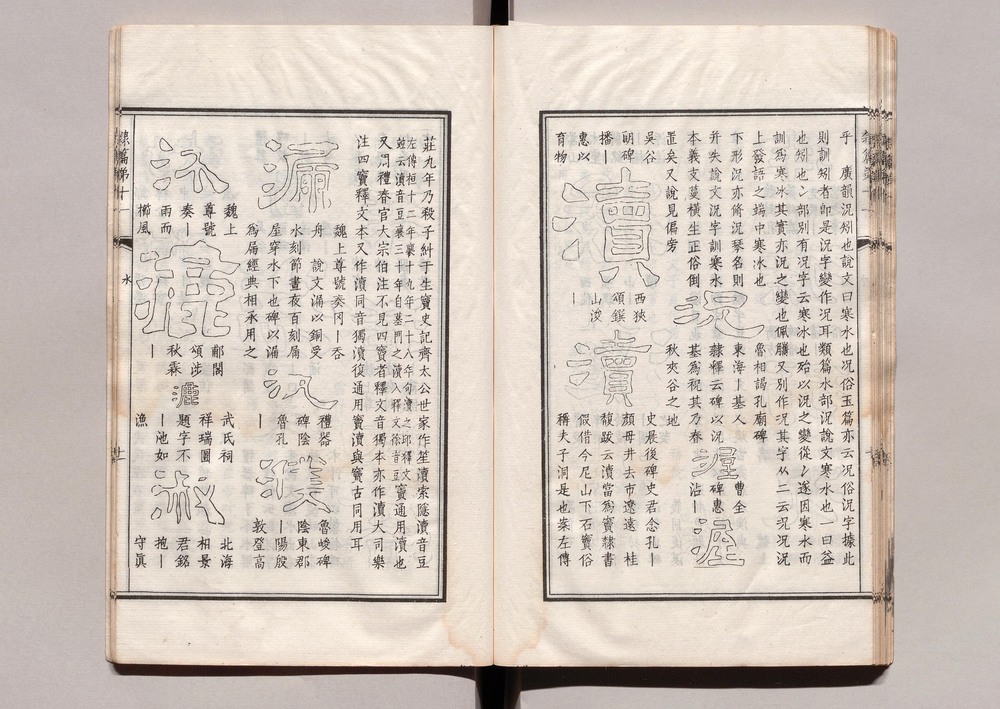 乎　廣韻況矧也說文曰寒水也况俗玉篇亦云况俗況字據此
則訓矧者即是況字變作况耳類篇水部況說文寒水也一曰益
也矧也冫部別有况字云寒冰也殆以況之變從冫遂因寒水而
訓爲寒冰其實亦況之變也佩觿又別作况其字从二云况況況
上發語之端中寒冰也
魯相謁孔廟碑
下形況亦脩況琴名則
東海｜基人
幵失說文況字訓寒水
隷釋云碑以況
本義支蔓橫生正俗倒
基爲稅其乃眷
置矣又說見偏旁
況
渥
曹全
碑惠
沾｜
渥
吳谷
朗碑
播｜
惠以
育物
瀆
西狹
頌鐉
山浚
｜
瀆
秋夾谷之地
史晨後碑史君念孔｜
顏母井去市遼遠　桂
馥跋云瀆當爲竇隷書
假借今尼山下石竇俗
稱夫子洞是也案左傳
莊九年乃殺子糾于生竇史記齊太公世家作笙瀆索隱瀆音豆
左傳桓十二年襄十九年二十八年句瀆之邱釋文
竝云瀆音豆襄三十年自墓門之瀆入釋文徐音豆
竇通用瀆也
又周禮春官大宗伯注不見四竇者釋文音獨本亦作瀆大司樂
注四竇釋文本又作瀆同音獨瀆復通用竇瀆與竇古同用耳
漏
魏上尊號奏冈｜呑
舟　說文漏以銅受
水刻節晝夜百刻屚
屋穿水下也碑以漏
爲屚經典相承用之
汎
禮器
碑陰
魯孔
｜
濮
魯峻碑
陰東郡
｜陽殷
敦登高
沐
魏上
尊號
奏｜
雨而
櫛風
漉
郙閣
頌涉
秋霖
｜
漉
武氏祠
祥瑞圖
題字不
｜池如
漁
淑
北海
相景
君銘
抱｜
守眞
隷篇第十一
水
十一